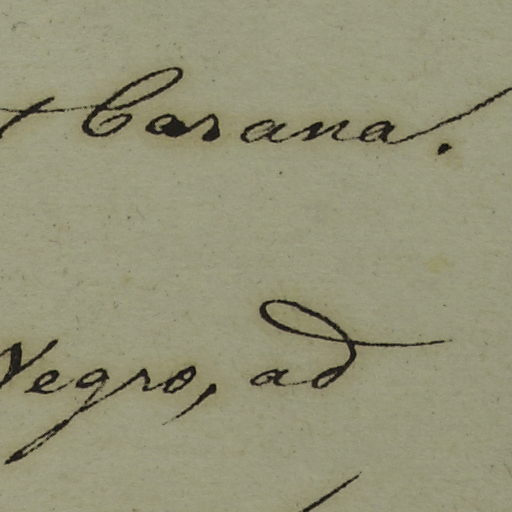 Carana.
Negro, ad